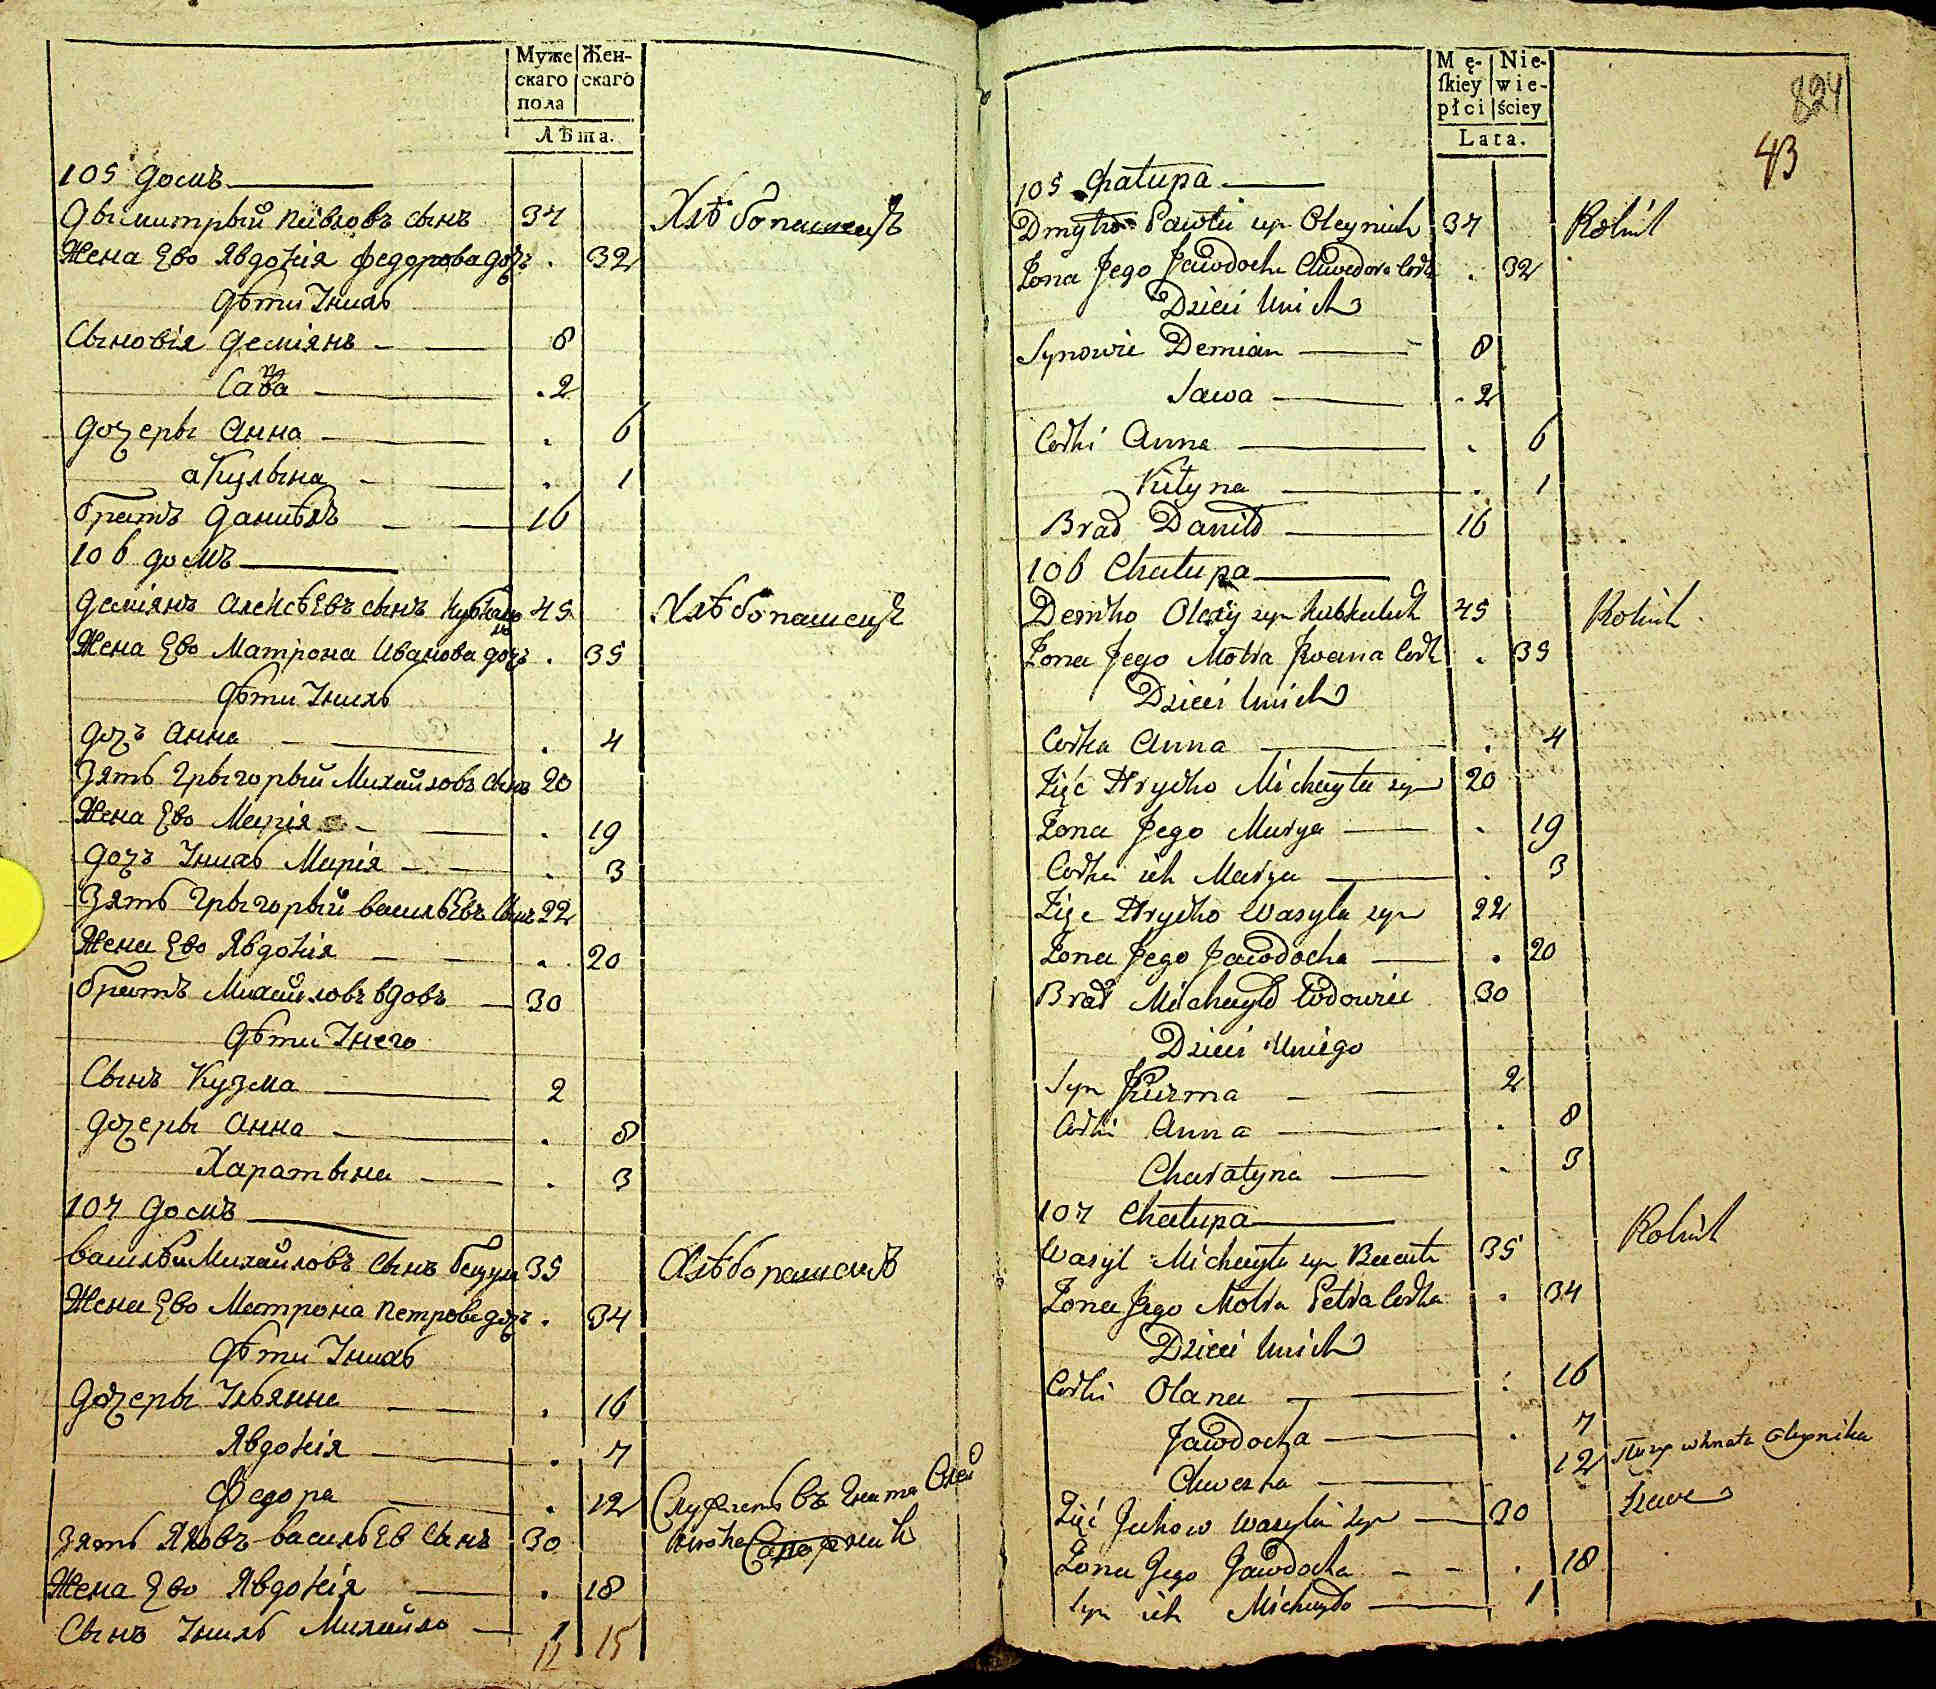 Муже Жен-
скаго скаго
пола
Лѣта.
105 домъ
Дымитрый Павловъ сынъ 37 Хлѣбопашецъ
Жена Ево Явдокія Федорова дочь . 32
Дѣти Унихъ
Сыновія Деміянъ 8
Сава . 2
дочеры Анна . 6
акулына . 1
братъ Данило 16
106 домъ
Деміянъ Алексѣевъ сынъ 45 Хлѣбопашецъ
Жена Ево Матрона Иванова дочь . 35
Дѣти Унихъ
дочъ Анна . 4
Зять Грыгорый Михайловъ сынъ 20
Жена Ево Марія . 19
дочъ Унихъ Марія . 3
Зять Грыгорый васильевъ сынъ 22
Жена Ево Явдокія . 20
братъ Михайловъ вдовъ 30
Дѣти Унего
Сынъ Кузма 2
дочеры Анна . 8
Харатына . 3
107 домъ
василь Михайловъ Сынъ 35 Хлѣбопашецъ
Жена Ево Матрона Петрова дочъ . 34
Дѣти Унихъ
дочеры Ульянна . 16
Явдокія . 7
Федора . 12 Служитъ въ Гната Олей
Зять Яковъ васильев Сынъ 30
Жена Ево Явдокія . 18
Сынъ Унихъ Михайло 1
12 15
Mę- Nie-
skiey wie-
płci ściey
Lata.
824
43
105 Chatupa
Dmytro Pawła syn Oleynik 37 Rolnik
Zona Jego Jawdocha Chwedora Cork . 32
Dzieci Unich
Synowie Demian 8
Sawa . 2
Corki Anna . 6
Kulyna . 1
Brad Daniło 16
106 Chatupa
Demko Olexy syn Kubkaluk 45 Rolnik
Zona Jego Motra Jwana Cork . 35
Dzieci Unich
Corka Anna . 4
Zięc Hryćko Michayła syn 20
Zona Jego Marya . 19
Corka ich Marya . 3
Zięc Hryćko Wasyla syn 22
Zona Jego Jawdocha . 20
Brad Michayło Wdowiec 30
Dzieci Uniego
Syn Kuzma 2
Corki Anna . 8
Charatyna . 3
107 Chatupa
Wasyl Michayła syn 35 Rolnik
Zona Jego Motra Petra Corka . 34
Dzieci Unich
Corki Olana . 16
Jawdocha . 7
Chweska 12 służy w hnata Oleynika
Zięć Jakow Wasyla syn 30 Szewc
Zona Jego Jawdocha . 18
Syn ich Michayło 1